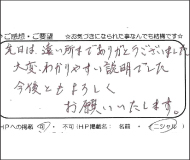 ご感想・ご要望 ☆お気付きになられた事なんでも結構です☆
先日は、遠い所までありがとうございました
大変わかりやすい説明でした
今後ともよろしく
お願いいたします。
HPへの掲載 可 ・ 不可 (HP掲載名: 名前 ・ イニシャル)